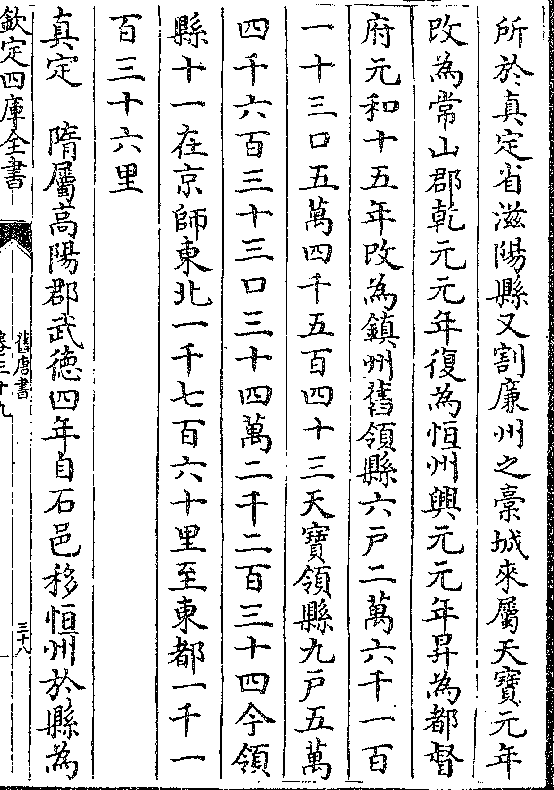 所於真定省滋陽縣又割廉州之槀城來屬天寶元年
改為常山郡乾元元年復為恒州興元元年昇為都督
府元和十五年改為鎮州舊領縣六戸二萬六千一百
一十三口五萬四千五百四十三天寶領縣九戸五萬
四千六百三十三口三十四萬二千二百三十四今領
縣十一在京師東北一千七百六十里至東都一千一
百三十六里
真定　隋屬高陽郡武徳四年自石邑移恒州於縣為
欽定四庫全書
舊唐書
卷三十九
三十八